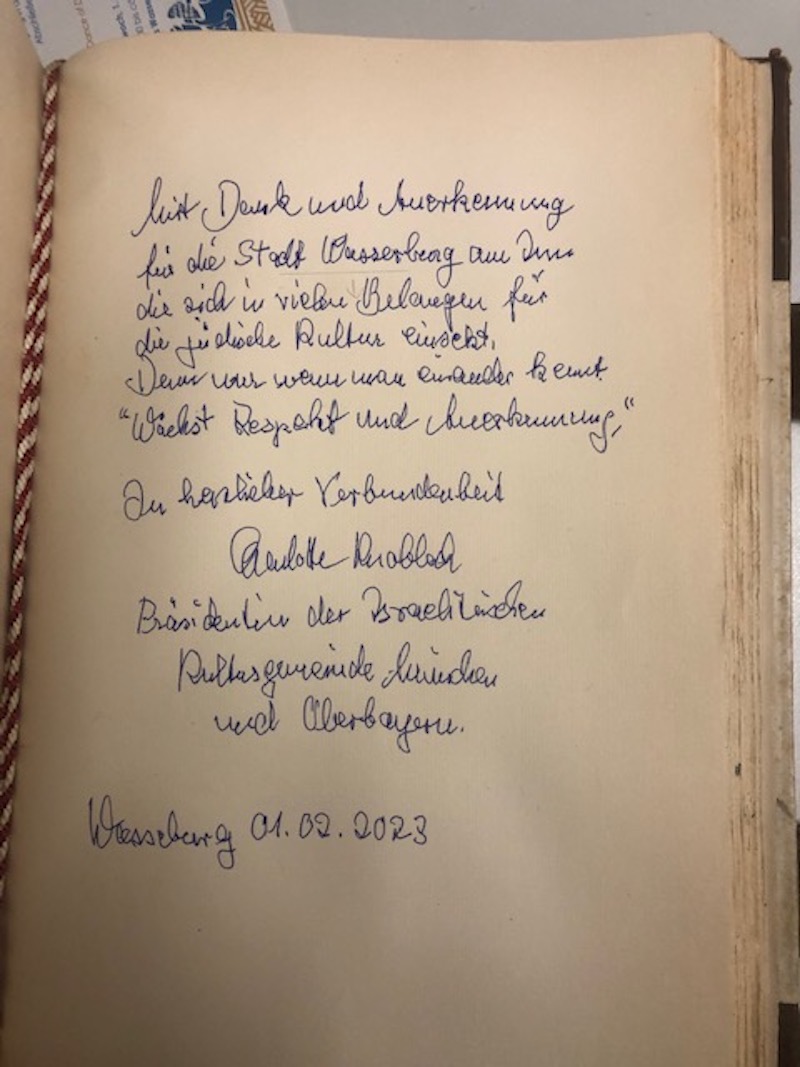 Mit Dank und Anerkennung
für die Stadt Wasserburg am Inn
die sich in vielen Belangen für
die jüdische Kultur einsetzt.
Denn nur wenn man einander kennt
"Wächst Respekt und Anerkennung."
In herzlicher Verbundenheit
Charlotte Knobloch
Präsidentin der Israelitischen
Kultusgemeinde München
und Oberbayern.
Wasserburg 01.02.2023